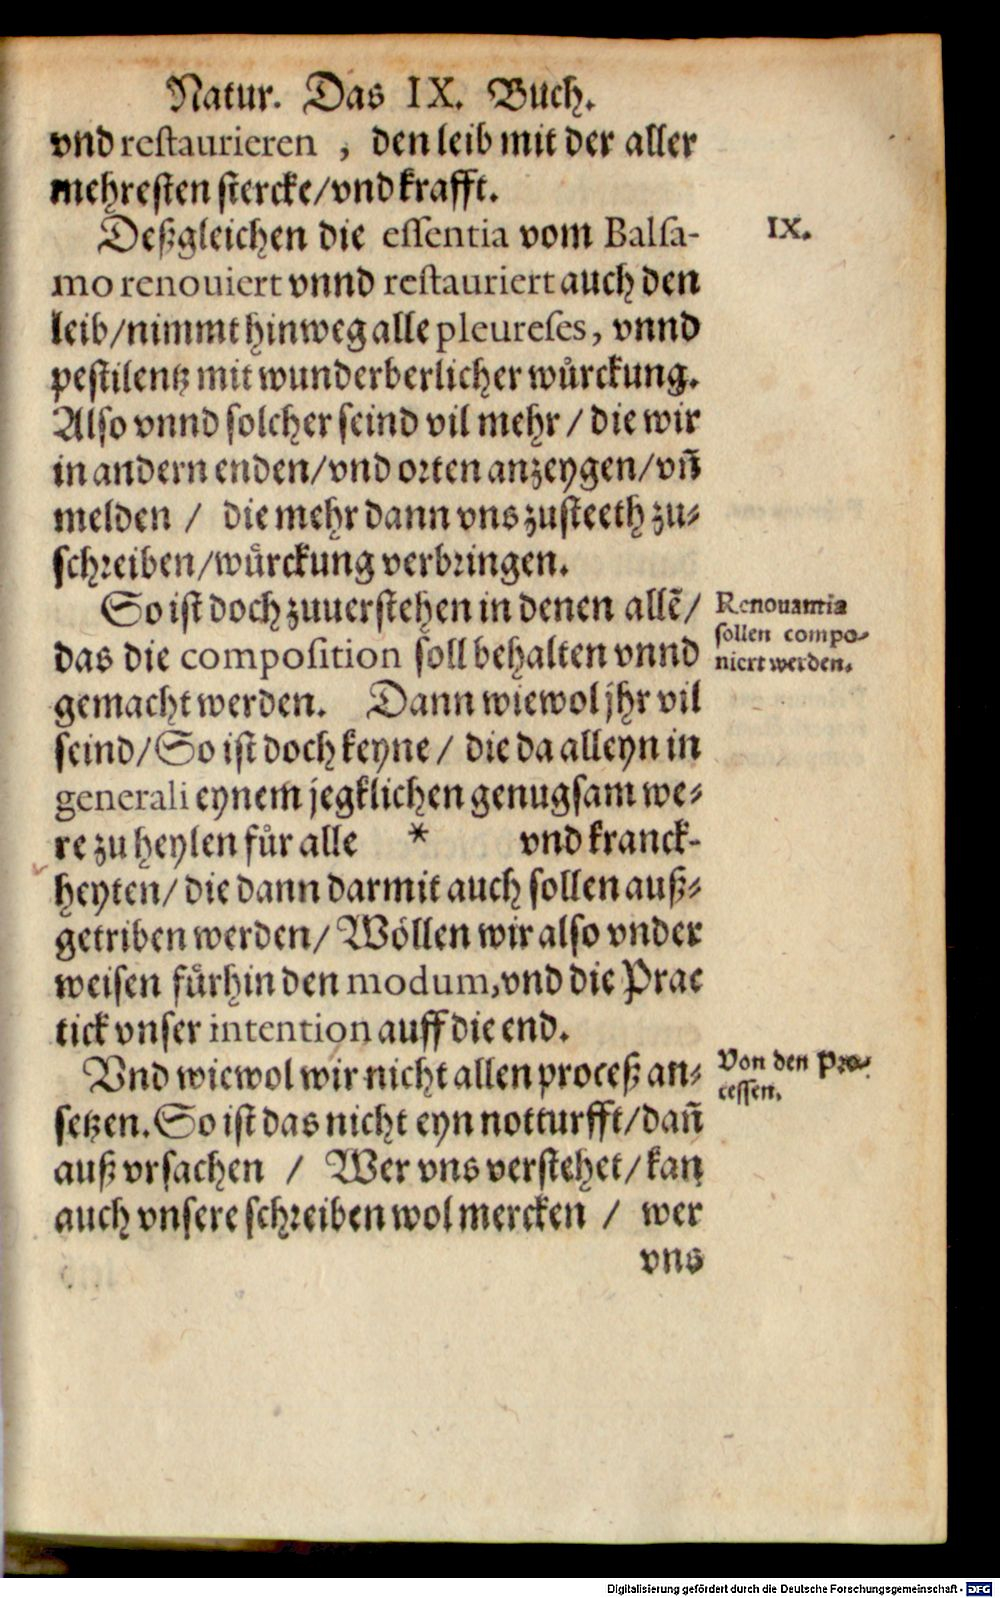 Natur. Das IX. Buch.
vnd restaurieren , den leib mit der aller
mehresten stercke/vnd krafft.
Deßgleichen die essentia vom Balsa-
IX.
mo renouiert vnnd restauriert auch den
leib/nimmt hinweg alle pleureses, vnnd
pestilentz mit wunderberlicher wuͤrckung.
Also vnnd solcher seind vil mehr / die wir
in andern enden/vnd orten anzeygen/vñ
melden / die mehr dann vns zusteeth zu⸗
schreiben/wuͤrckung verbringen.
So ist doch zuuerstehen in denen allẽ/
das die composition soll behalten vnnd
gemacht werden. Dann wiewol jhr vil
Renouantia
sollen compo⸗
niert werden.
seind/So ist doch keyne / die da alleyn in
generali eynem jegklichen genugsam we⸗
re zu heylen fuͤr alle * vnd kranck-
heyten/ die dann darmit auch sollen auß⸗
getriben werden/ Woͤllen wir also vnder
weisen fuͤrhin den modum,vnd die Prac
tick vnser intention auff die end.
Vnd wiewol wir nicht allen proceß an⸗
setzen.So ist das nicht eyn notturfft/dañ
Von den Pro⸗
cessen.
auß vrsachen / Wer vns verstehet/ kan
auch vnsere schreiben wol mercken / wer
vns
Digitalisierung gefördert durch die Deutsche Forschungsgemeinschaft - DFG